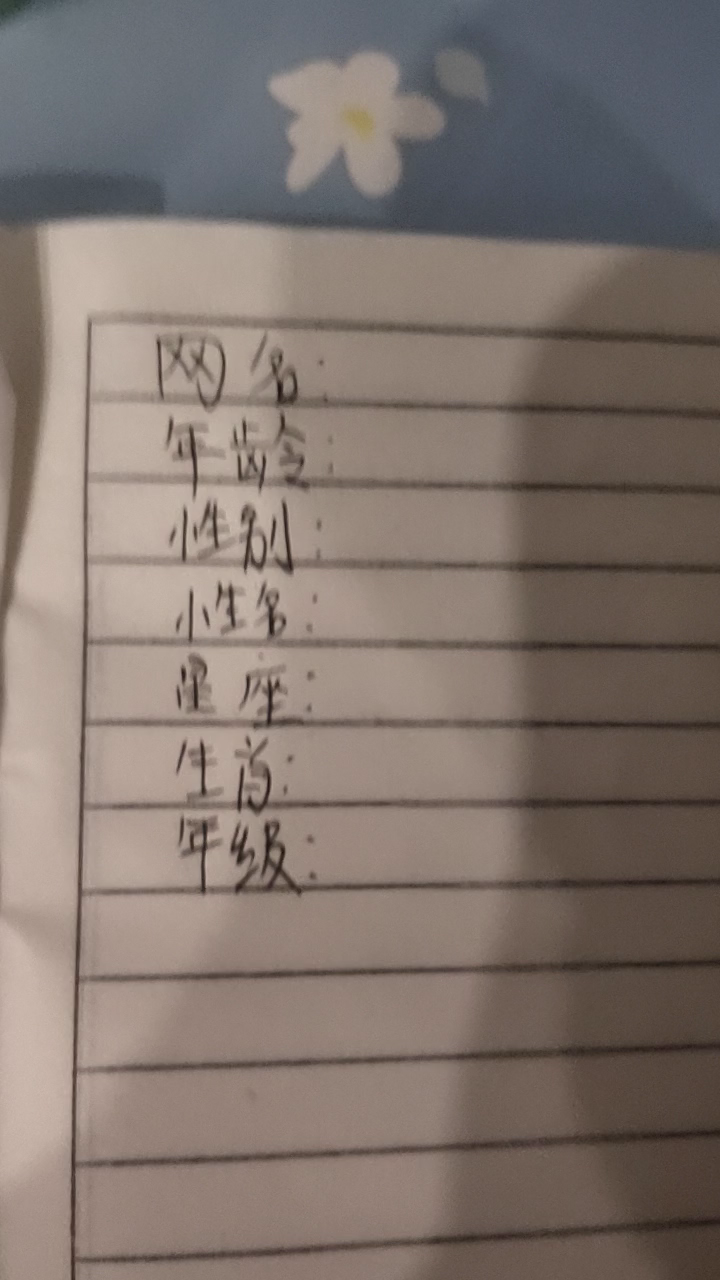 网名:
年龄:
性别:
性名:
星座:
生肖:
年级: